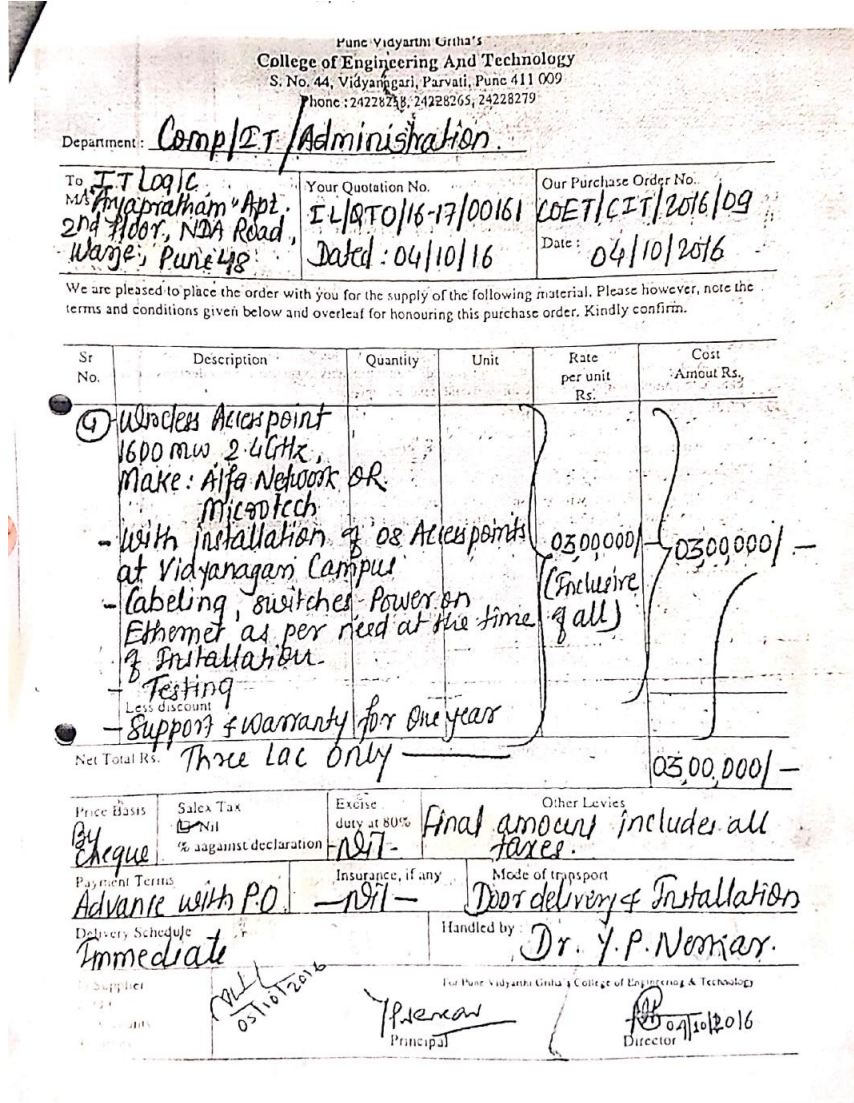 Pune Vidyarthi Griha's
College of Engineering And Technology
S. No. 44, Vidyanagari, Parvati, Pune 411 009
Phone : 24228258, 24228265, 24228279
Department : Comp/IT/Administration.
To IT Logic
M/s "Aryapratham" Apt.
2nd floor, NDA Road,
Warje, Pune 48
Your Quotation No.
IL/QTO/16-17/00161
Dated : 04/10/16
Our Purchase Order No.
COET/CIT/2016/09
Date : 04/10/2016
We are pleased to place the order with you for the supply of the following material. Please however, note the
terms and conditions given below and overleaf for honouring this purchase order. Kindly confirm.
Sr No. Description Quantity Unit Rate per unit Rs. Cost Amout Rs.
① - Wireless Accesspoint
1600 mw 2.4GHz,
Make: Alfa Network OR
Microtech
- With installation of 08 Accesspoints 03,00,000/- 03,00,000/-
at Vidyanagari Campus (Inclusive
- Labeling, switches Power on of all)
Ethernet as per need at the time
of Installation.
- Testing
Less discount
- Support & warranty for One year
Net Total Rs. Three Lac Only 03,00,000/-
Price Basis
By
Cheque
Salex Tax
Nil
% aagainst declaration
Excise
duty at 80%
-Nil-
Other Levies
Final amount includes all
taxes.
Payment Terms
Advance with P.O.
Insurance, if any
-Nil-
Mode of transport
Door delivery & Installation
Delivery Schedule
Immediate
Handled by : Dr. Y. P. Nerkar.
Supplier
05/10/2016
For Pune Vidyarthi Griha's College of Engineering & Technology
Principal
04/10/2016
Director